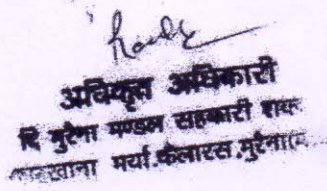 अधिकृत अधिकारी
दि मुरैना मण्डल सहकारी शक्कर
कारखाना मर्या.कैलारस,मुरैना